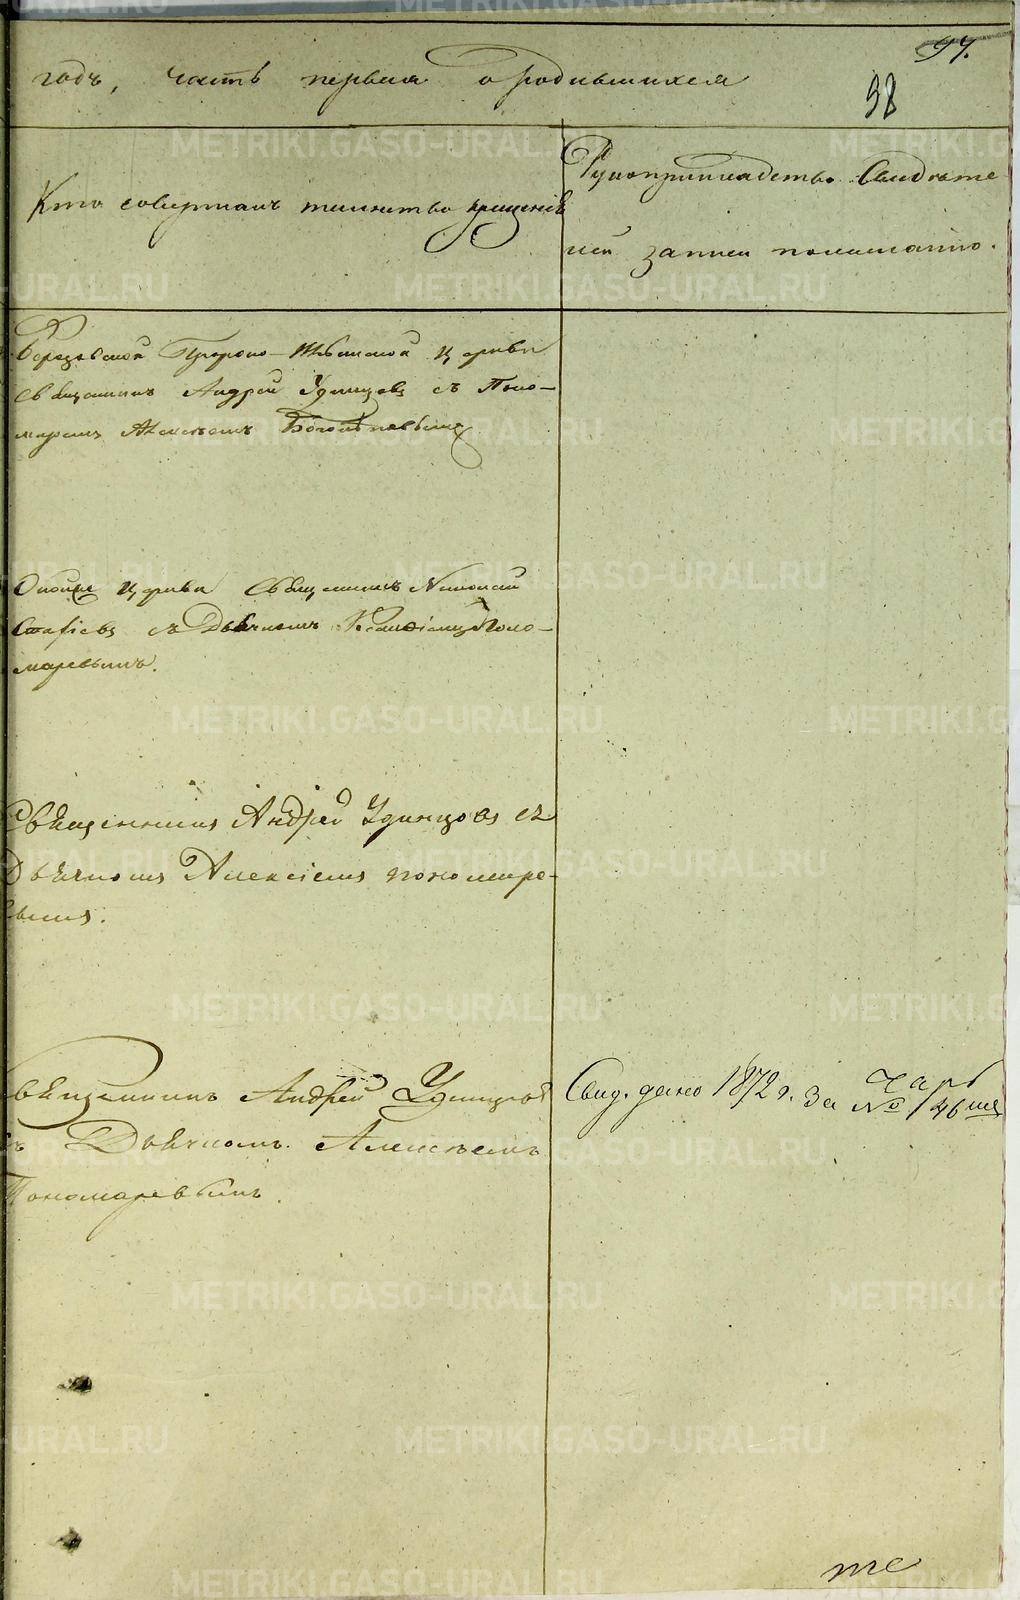 97.
98
годъ, часть первая о родившихся
Кто совершалъ таинство крещенія
Рукоприкладство свидѣте
лей записи по желанію.
Церкви
Священникъ Андрей Удинцовъ съ Поно-
маремъ Алексѣемъ
Оной же Церкви Священникъ Николай
съ Дьячкомъ Алексіемъ Поно-
маревымъ.
Священникъ Андрей Удинцовъ съ
Дьячкомъ Алексіемъ Пономаре-
вымъ.
Священникъ Андрей Удинцовъ
съ Дьячкомъ Алексѣемъ
Пономаревымъ.
Свид. дано 1872 г. За № 46
METRIKI.GASO-URAL.RU